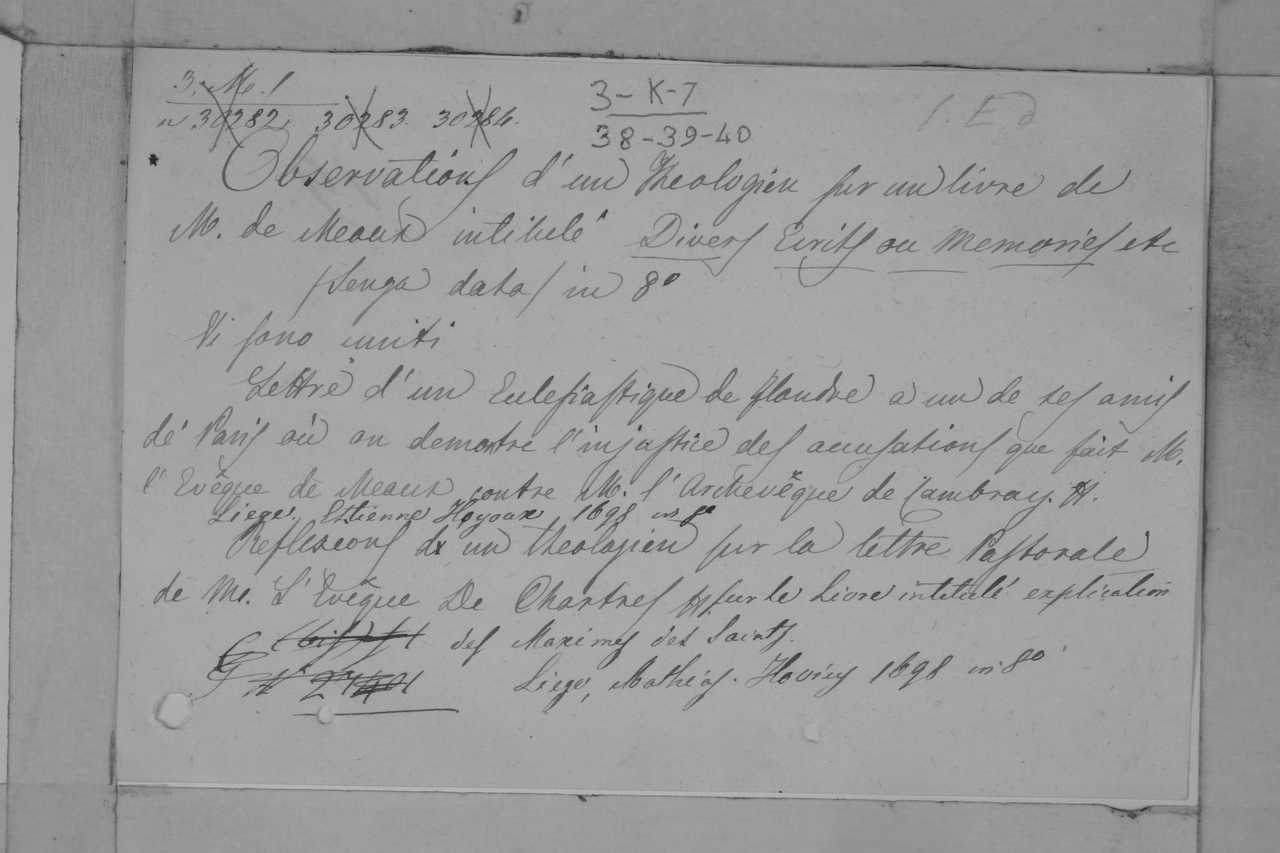 3. M. 1
n 30282. 30283. 30284.
3-K-7
38-39-40
* Observations d'un Theologien sur un livre de
M. de Meaux intitulé Divers Ecrits ou Memories etc
(senza data) in 8º
Vi sono uniti
Lettre d'un Eclesiastique de Flandre a un de ses amis
de Paris où on demontre l'injustice des accusations que fait M.
l'Evêque de Meaux contre M. l'Archevêque de Cambray.
Liege. Estienne Hoyoux 1698 in 8º
Reflexions d'un theologien sur la lettre Pastorale
de M. L'Evêque De Chartres sur le Livre intitulé explication
des Maximes des Saints.
Liege, Mathias. Hovius 1698 in 8º